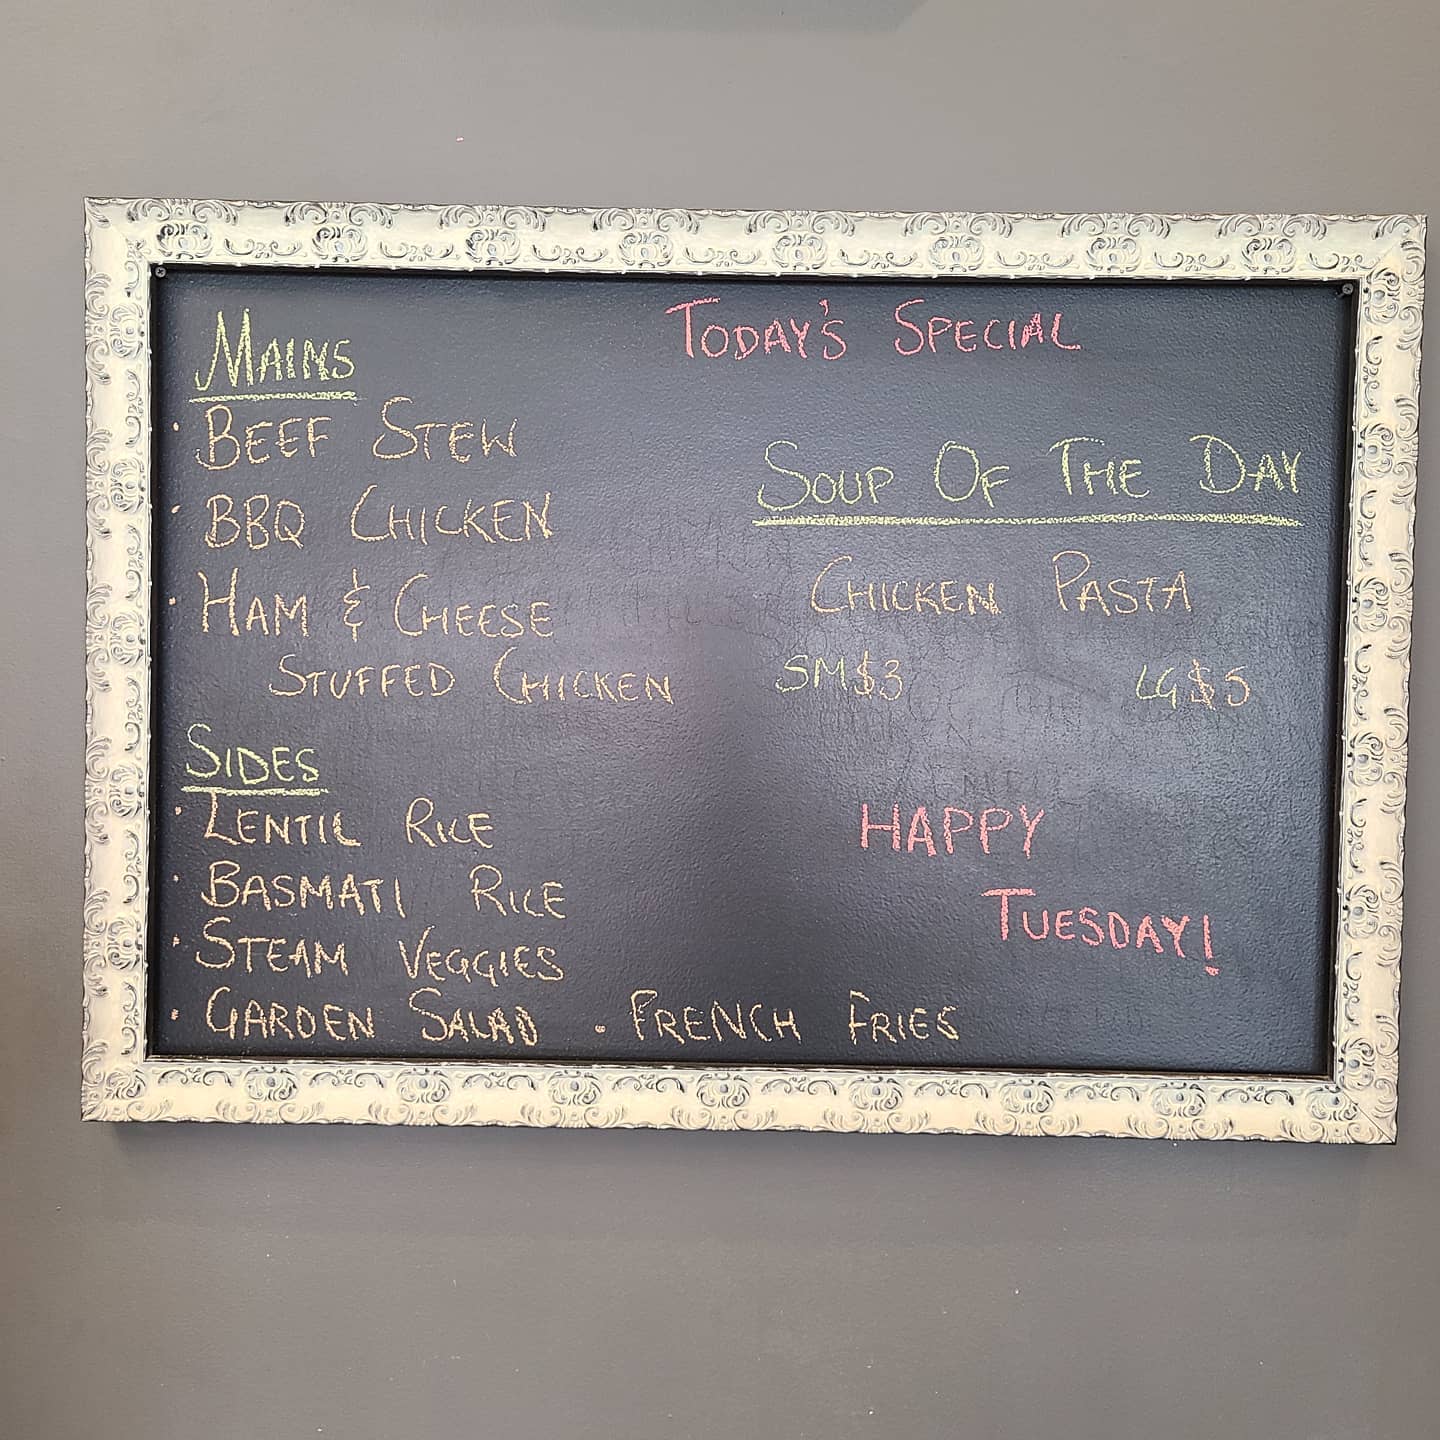 TODAY'S SPECIAL
MAINS
• BEEF STEW
• BBQ CHICKEN
• HAM & CHEESE
STUFFED CHICKEN
SIDES
• LENTIL RICE
• BASMATI RICE
• STEAM VEGGIES
• GARDEN SALAD • FRENCH FRIES
SOUP OF THE DAY
CHICKEN PASTA
SM $3 LG $5
HAPPY
TUESDAY!